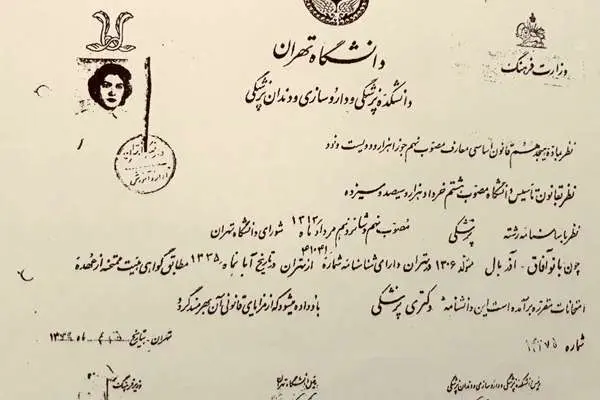 دانشگاه تهران
وزارت فرهنگ
دانشکده پزشکی و داروسازی و دندان پزشکی
نظر بماده هیجدهم قانون اساسی معارف مصوب نهم جوزا هزار و دویست و نود
نظر بقانون تأسیس دانشگاه مصوب هشتم خرداد هزار و سیصد و سیزده
نظر باساسنامه رشته پزشکی مصوب نهم و شانزدهم مرداد ماه ۱۳۱۳ شورای دانشگاه تهران
چون بانو آفاق - اقدبال متولد ۱۳۰۶ در تهران دارای شناسنامه شماره ۴۱۰۴۱ از تهران در تاریخ آبانماه ۱۳۳۵ مطابق گواهی هیئت ممتحنه از عهده
امتحانات مقرره برآمده است این دانشنامه دکتری پزشکی باو داده میشود که از مزایای قانونی آن بهره مند گردد
شماره
تهران - بتاریخ ماه
رئیس دانشکده پزشکی و داروسازی و دندان پزشکی
رئیس دانشگاه تهران
وزیر فرهنگ